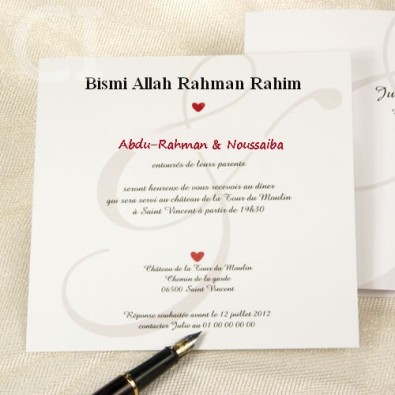 Bismi Allah Rahman Rahim
Abdu-Rahman & Noussaiba
entourés de leurs parents
seront heureux de vous recevoir au dîner
qui sera servi au château de la Tour du Moulin
à Saint Vincent à partir de 19h30
Château de la Tour du Moulin
Chemin de la garde
06500 Saint Vincent
Réponse souhaitée avant le 12 juillet 2012
contacter Julie au 01 00 00 00 00